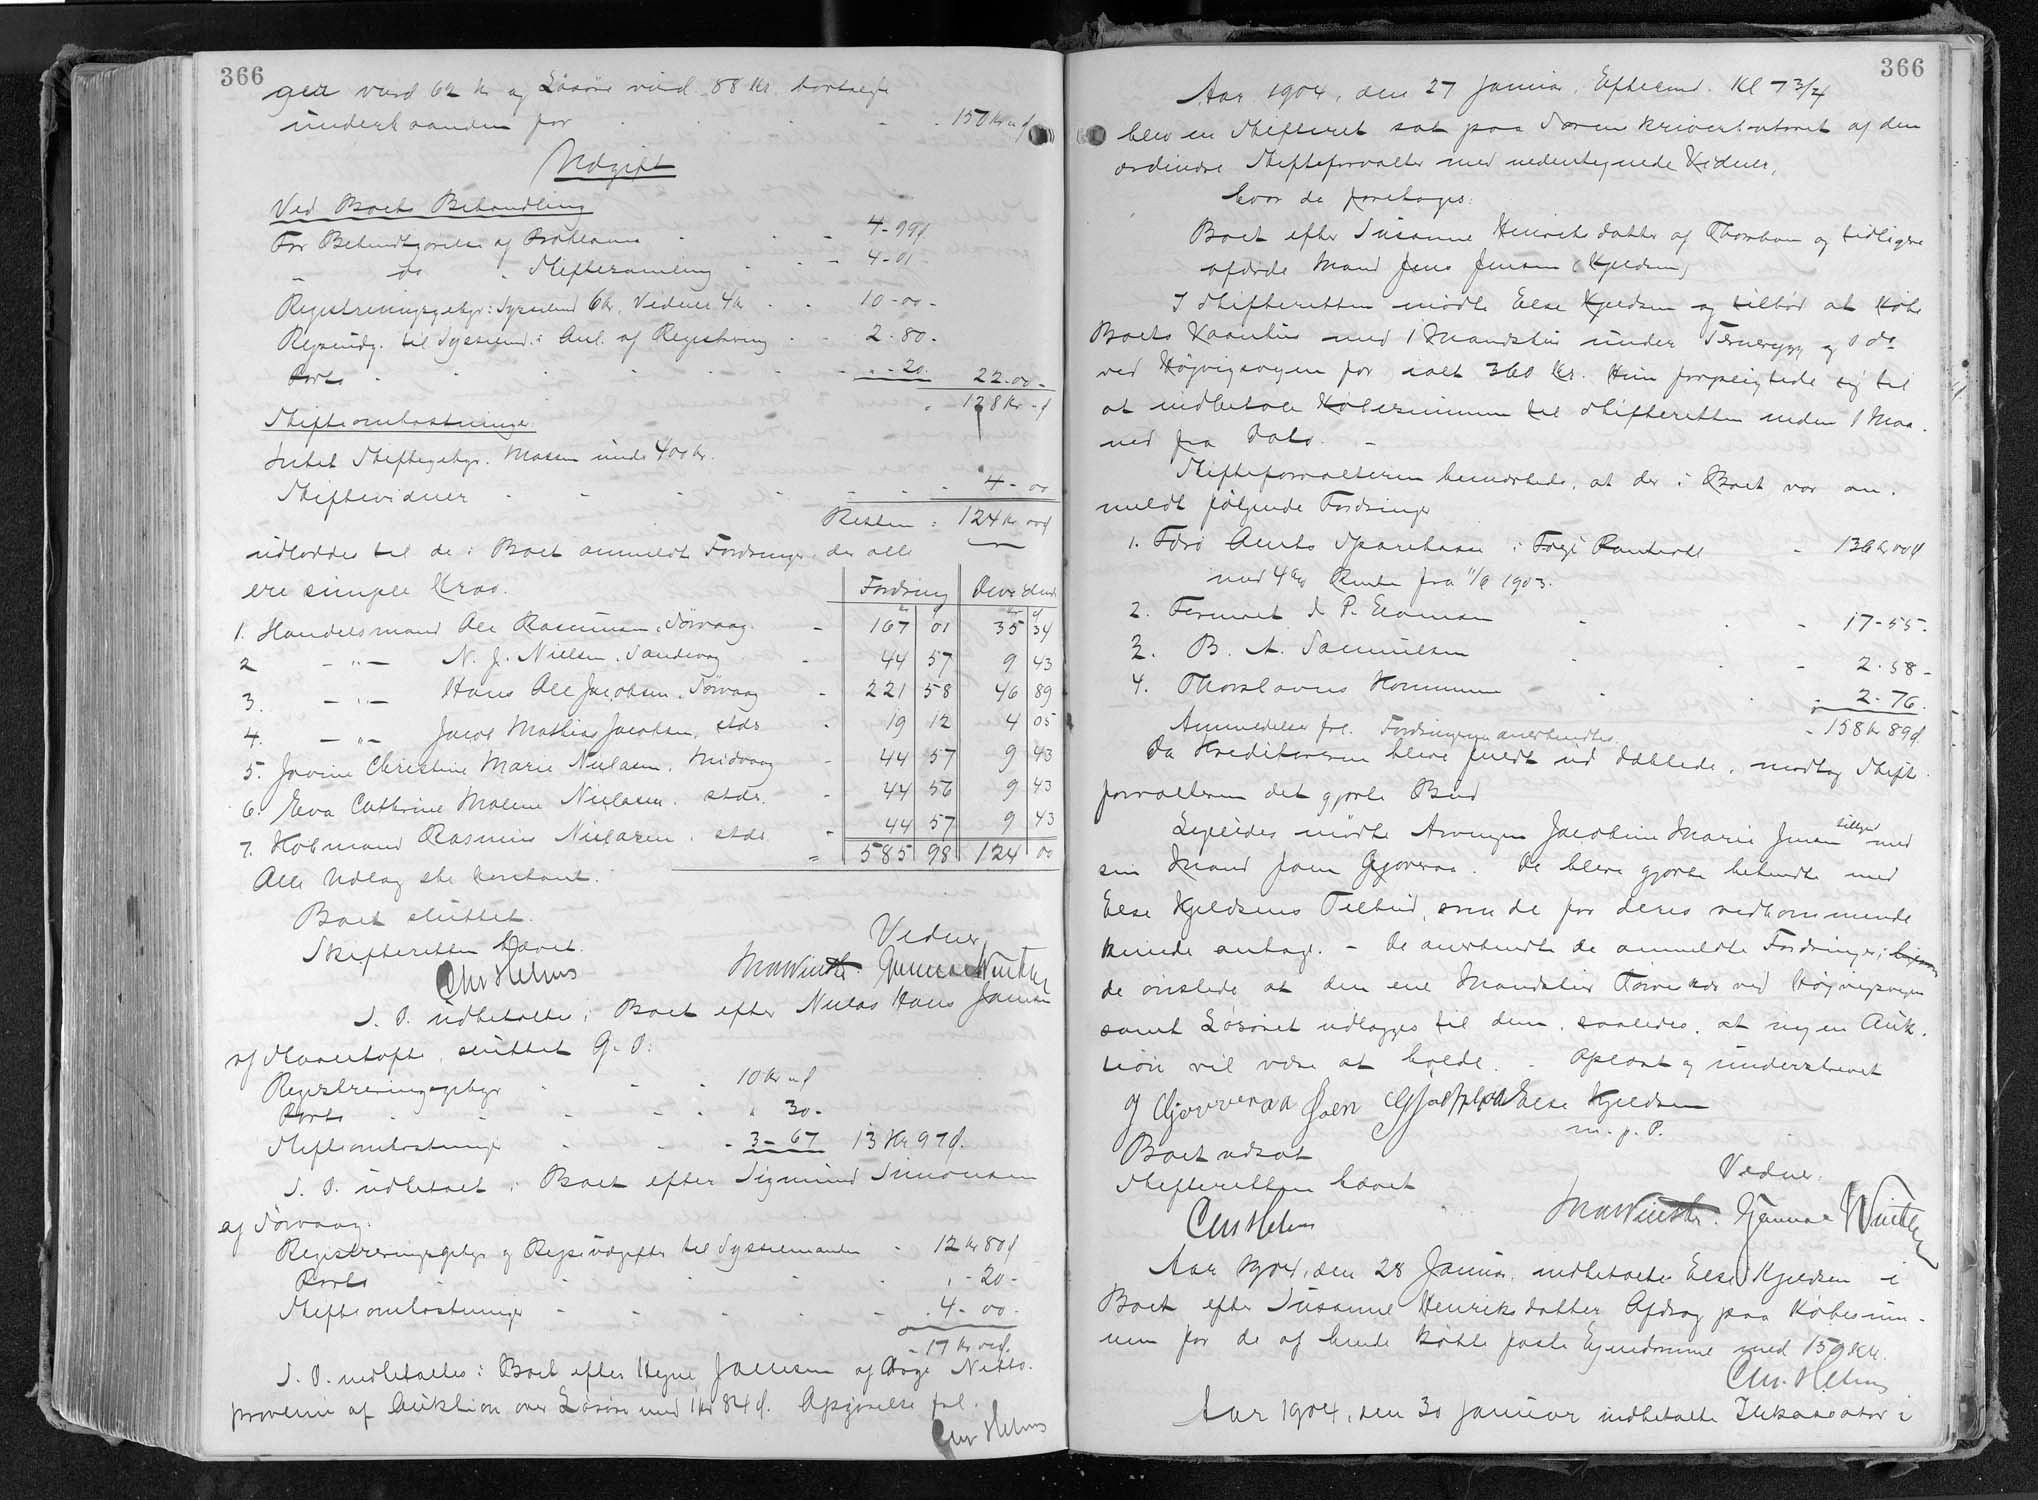 366
ger værd 62 Kr og Løsøre værd 88 Kr. bortsolgt
underhaanden for 150 Kr " ø
Udgift
Ved Boets Behandling
For Bekendtgørelse af Proklama 4-99 ø
" do " Skiftesamling 4-01
Registreringsgebyr: Sysselmd 6 kr, Vidner 4 kr 10-00-
Rejseudg. til Sysselmd. i Anl. af Registrering 2-80-
Porto 20 22-00-
128 Kr - ø
Skifteomkostninger
Intet Skiftegebyr. Massen under 400 kr.
Skiftevidner 4-00
Resten: 124 Kr 00 ø
udloddes til de i Boet anmeldte Fordringer, der alle
ere simple Krav. Fordring Dividende
1. Handelsmand Ole Rasmussen, Sørvaag 167 01 35 34
2 -"- N. J. Nielsen, Sandevaag 44 57 9 43
3. -"- Hans Ole Jacobsen, Sørvaag 221 58 46 89
4. -"- Jacob Mathias Jacobsen, stds 19 12 4 05
5. Jovine Christine Marie Nielsen, Midvaag 44 57 9 43
6. Eva Cathrine Malene Nielsen, stds. 44 56 9 43
7. Kobmand Rasmus Nielsen, stds 44 57 9 43
= 585 98 124 00
Alle Udlæg ske kontant.
Boet sluttet.
Skifteretten hævet. Vidner
Chr Helms MWinther. Gunnar Winther
S. D. udbetaltes i Boet efter Niclas Hans
af sluttet G. D.
Registreringsgebyr 10 Kr " ø
Porto " 30-
Skifteomkostninger 3-67 13 Kr 97 ø.
S. D. udbetalt i Boet efter Sigmund Simonsen
af Sørvaag.
Registreringsgebyr og Rejseudgifter til Sysselmanden 12 Kr 80 ø
Porto " - 20 -
Skifteomkostninger 4-00-
17 Kr 00 ø.
S. D. indbetaltes i Boet efter Joensen af Netto-
provenu af Auktion over Løsøre med 1 Kr 84 ø. Afgørelse fol.
Chr Helms
366
Aar 1904, den 27 Januar, Eftermd. Kl 7 3/4
blev en Skifteret sat paa Sorenskriverkontoret af den
ordinære Skifteforvalter med undertegnede Vidner,
hvor da foretoges:
Boet efter Susanne Henriksdatter af Thorshavn og tidligere
afdøde Mand Jens Jensen (Kjeldsen)
I Skifteretten mødte Else Kjeldsen og tilbød at købe
Boets Vaanhus med 1 Mandsliv under og 1 do
ved Højvigsvejen for ialt 360 Kr. Hun forpligtede sig til
at indbetale Købesummen til Skifteretten inden 1 Maa-
ned fra Dato. -
Skifteforvalteren bemærkede, at der i Boet var an-
meldt følgende Fordringer
1. Færø Amts Sparekasse 136 Kr 00 ø
med 4% Rente fra 11/6 1903.
2. Firmaet 17-55-
3. B. A. Samuelsen 2-58-
4. Thorshavns Kommune 2-76
Anmeldelser fol. Fordringerne anerkendtes. 158 Kr 89 ø.
Da Kreditorerne bleve fuldt ud dækkede, modtog Skifte-
forvalteren det gjorte Bud
Ligeledes mødte Arvingen Jacobine Marie Jensen tilligemed
sin Mand Joen Gjoveraa. De bleve gjorte bekendte med
Else Kjeldsens Tilbud, som de for deres vedkommende
kunde antage. - De anerkendte de anmeldte Fordringer,
de ønskede at den ene Mandsliv ved Højvigsvejen
samt Løsøret udlægges til dem, saaledes, at ingen Auk-
tion vil være at holde. - Oplæst og underskrevet
J Gjovveraa Joen Else Kjeldsen
m. f. P.
Boet udsat
Skifteretten hævet Vidner.
Chr Helms MWinther. Gunnar Winther
Aar 1904, den 28 Januar, indbetalte Else Kjeldsen i
Boet efter Susanne Henriksdatter Afdrag paa Købesum-
men for de af hende købte faste Ejendomme med 159 Kr.
Chr. Helms
Aar 1904, den 30 Januar indbetalte Inkassator i